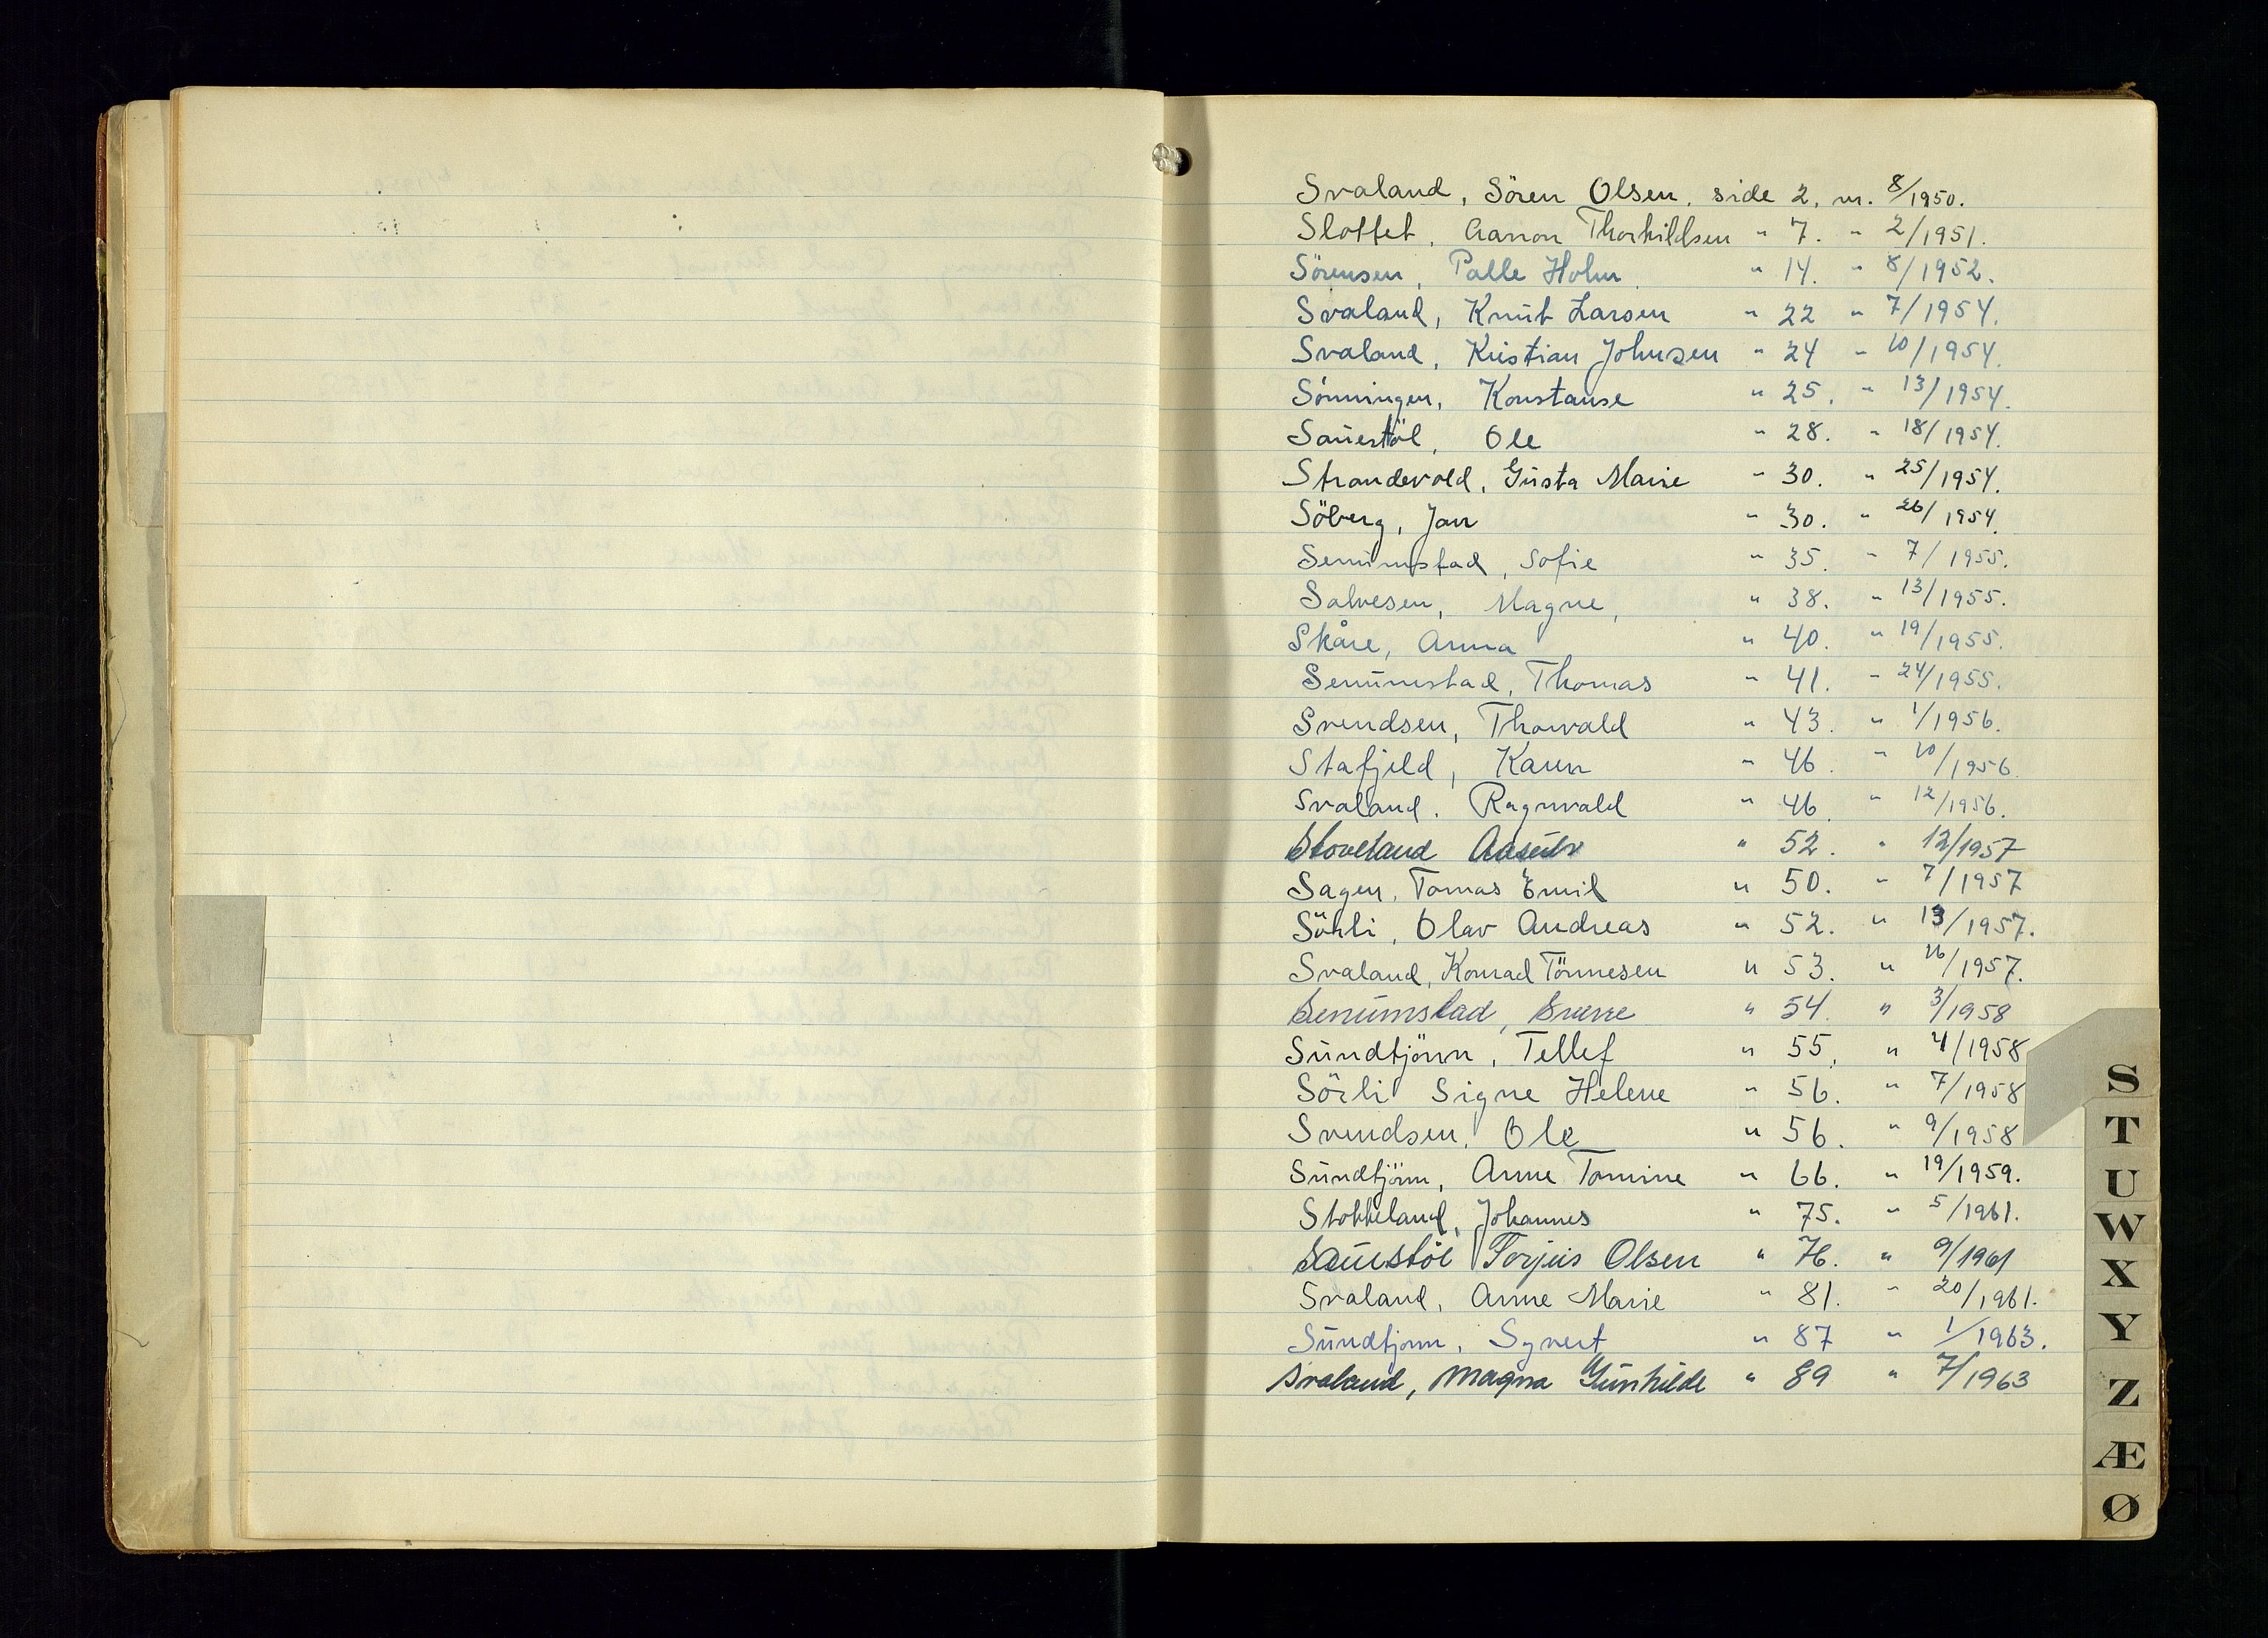 Svaland, Sören Olsen, side 2, nr. 8/1950.
Slottet, Aanon Thorkildsen " 7. " 2/1951.
Sörensen, Palle Holm " 14. " 8/1952.
Svaland, Knut Larsen " 22 " 7/1954.
Svaland, Kristian Johnsen " 24 " 10/1954.
Sönningen, Konstanse " 25. " 13/1954.
Sauestöl, Ole " 28. " 18/1954.
Strandevold, Gusta Marie " 30. " 25/1954.
Söberg, Jan " 30. " 26/1954.
Senumstad, Sofie " 35. " 7/1955.
Salvesen, Magne, " 38. " 13/1955.
Skåre, Anna " 40. " 19/1955.
Senumstad, Thomas " 41. " 24/1955.
Svendsen, Thorvald " 43. " 1/1956.
Stafjeld, Karen " 46. " 10/1956.
Svaland. Ragnvald " 46. " 12/1956.
Stoveland Aasulv " 52. " 12/1957
Sagen, Tomas Emil " 50. " 7/1957
Sörli, Olav Andreas " 52. " 13/1957.
Svaland, Konrad Tönnesen " 53. " 16/1957.
Senumstad, Sverre " 54. " 3/1958
Sundtjönn, Tellef " 55. " 4/1958
Sörli Signe Helene " 56. " 7/1958
Svendsen, Ole " 56. " 9/1958
Sundtjönn, Anne Tomine " 66. " 19/1959.
Stokkeland, Johannes " 75. " 5/1961.
Sauestöl Torjus Olsen " 76. " 9/1961
Svaland, Anne Marie " 81. " 20/1961.
Sundtjønn, Syvert " 87 " 1/1963.
Svaland, Magna Gunhilde " 89 " 7/1963
S
T
U
W
X
Y
Z
Æ
Ø